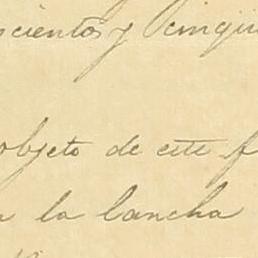 scientos y cinqu
objeto de este f
la lancha